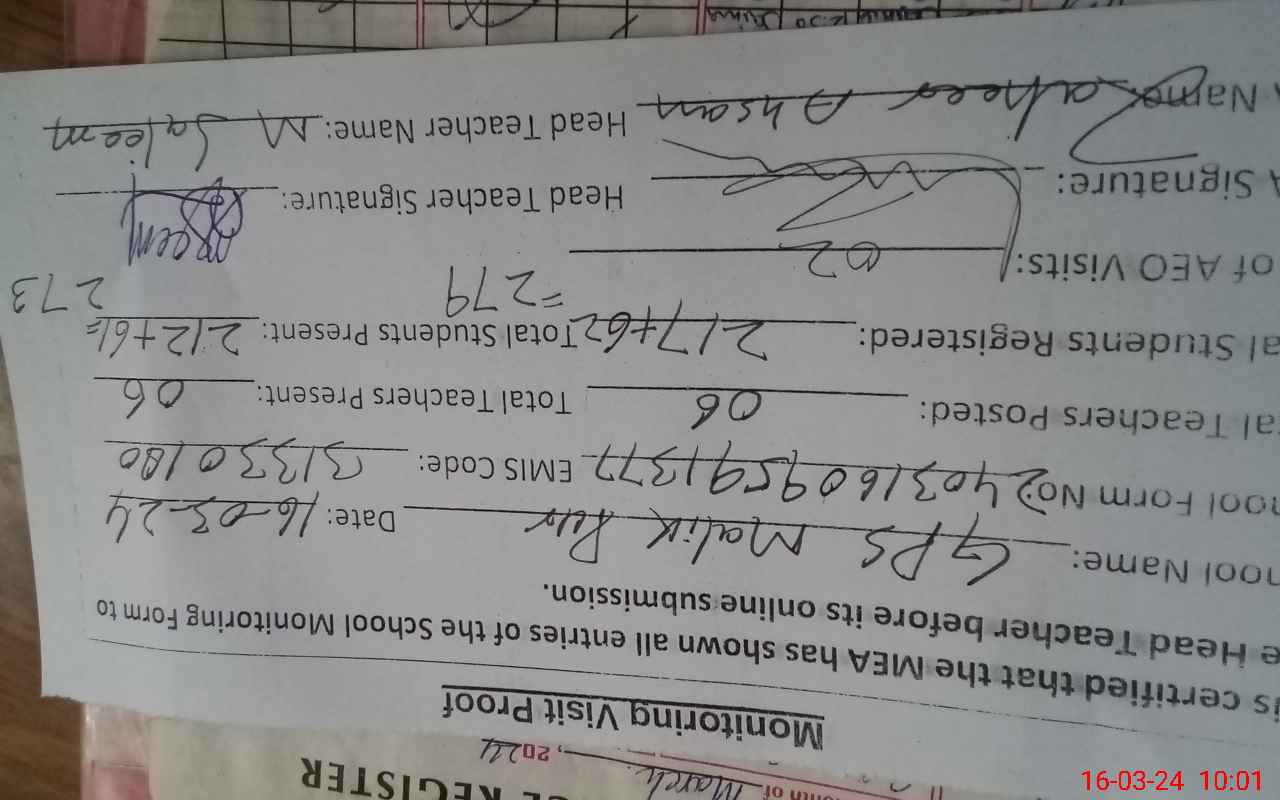 CE REGISTER
onth of March, 2024
Monitoring Visit Proof
is certified that the MEA has shown all entries of the School Monitoring Form to
e Head Teacher before its online submission.
hool Name: GPS Malik Pur Date: 16-03-24
hool Form No: 24031609591377 EMIS Code: 31330180
al Teachers Posted: 06 Total Teachers Present: 06
al Students Registered: 217+62 = 279 Total Students Present: 212+61= 273
of AEO Visits: 02
A Signature: Head Teacher Signature:
A Name: Ahsan Head Teacher Name: M Saleem
16-03-24 10:01